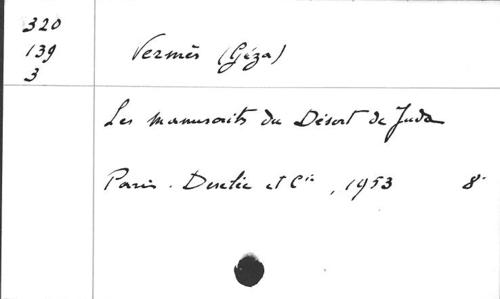 320
139
3
Vermès (Géza)
Les manuscrits du Désert de Juda
Paris. Desclée et Cie, 1953 8°